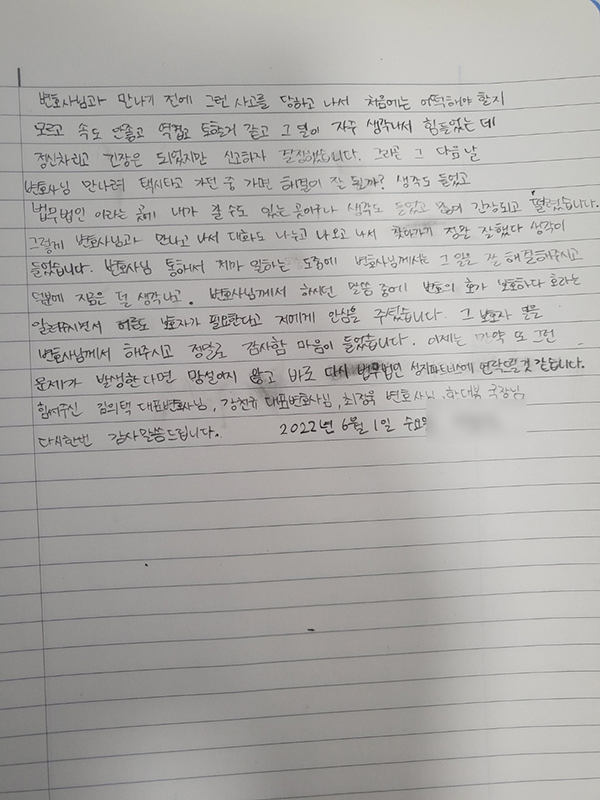 변호사님과 만나기 전에 그런 사고를 당하고 나서 처음에는 어떡해야 할지
모르고 속도 안좋고 역겹고 토할거 같고 그 일이 자주 생각나서 힘들었는 데
정신차리고 긴장은 되었지만 신고하자 결심했습니다. 그리곤 그 다음날
변호사님 만나려 택시타고 가던 중 가면 해결이 잘 될까? 생각도 들었고
법무법인 이라는 곳에 내가 갈 수도 있는 곳이구나 생각도 들었고 긴장되고 떨렸습니다.
그렇게 변호사님과 만나고 나서 대화도 나누고 나오고 나서 찾아가기 정말 잘했다 생각이
들었습니다. 변호사님 통해서 제가 일하는 도중에 변호사님께서는 그 일을 잘 해결해주시고
덕분에 지금은 덜 생각나고. 변호사님께서 하시던 말씀 중에 변호의 호가 보호하다 호라는
알려주시면서 어른도 보호자가 필요한다고 저에게 안심을 주셨습니다. 그 보호자 역을
변호사님께서 해주시고 정말로 감사함 마음이 들었습니다. 이제는 만약 또 그런
문제가 발생한다면 망설이지 않고 바로 다시 법무법인 성지파트너스에 연락드릴것 같습니다.
힘써주신 김의택 대표변호사님, 강천규 대표변호사님, 최정욱 변호사님, 하대복 국장님
다시한번 감사말씀드립니다. 2022년 6월 1일 수요일